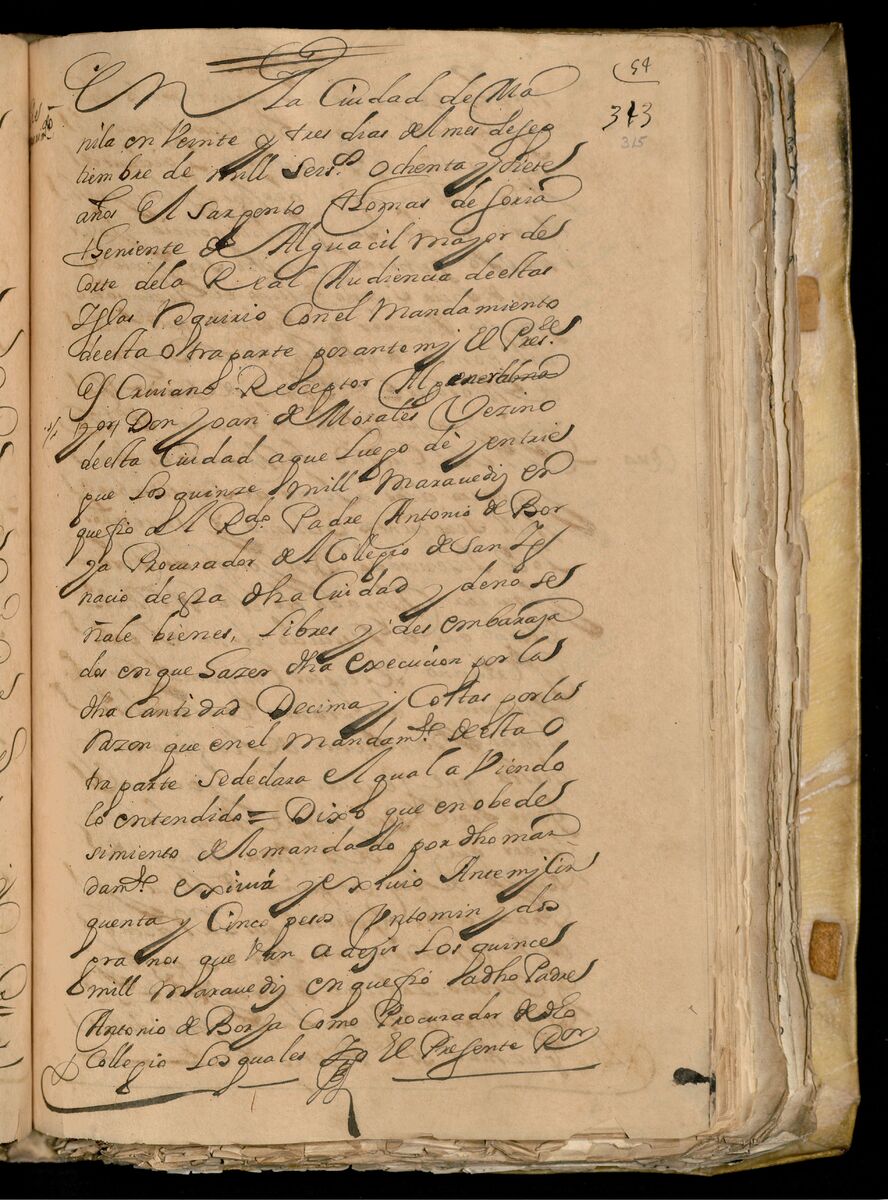 54
343
315
En La Ciudad de Ma
nila en Veinte y tres dias del mes de sep
tiembre de mill seisºs ochenta y siete
años El sargento thomas de soria
theniente de Alguacil mayor de
Corte de la Real Audiencia de estas
Yslas Requirio con el Mandamiento
de esta otra parte por ante mi El Pres.te
Escriuano Receptor Al general
Don Joan de Morales Vezino
de esta Ciudad a que Luego dè y entrie
gue Los quinze mill Marauedis en
que fio al Rdo. Padre Antonio de Bor
ja Procurador del Collegio de San Yg
nacio de esta dha Ciudad y de no se
ñale bienes, Libres y des embaraza
dos en que hazer dha execucion por la
dha Cantidad Decima y Costas por la
Razon que en el Mandamto. de esta o
tra parte se declara El qual aViendo
lo entendido = Dixo que en obede
simiento de lo mandado por dho man
damto. exiuia y exiuio Ante mi sin
quenta y Cinco pesos Vn tomin y dos
granos que Van a dezir Los quince
mill Marauedis en que fio a dho Padre
Antonio de Borja Como Procurador de dho
Collegio Los quales Yo El Presente Ror